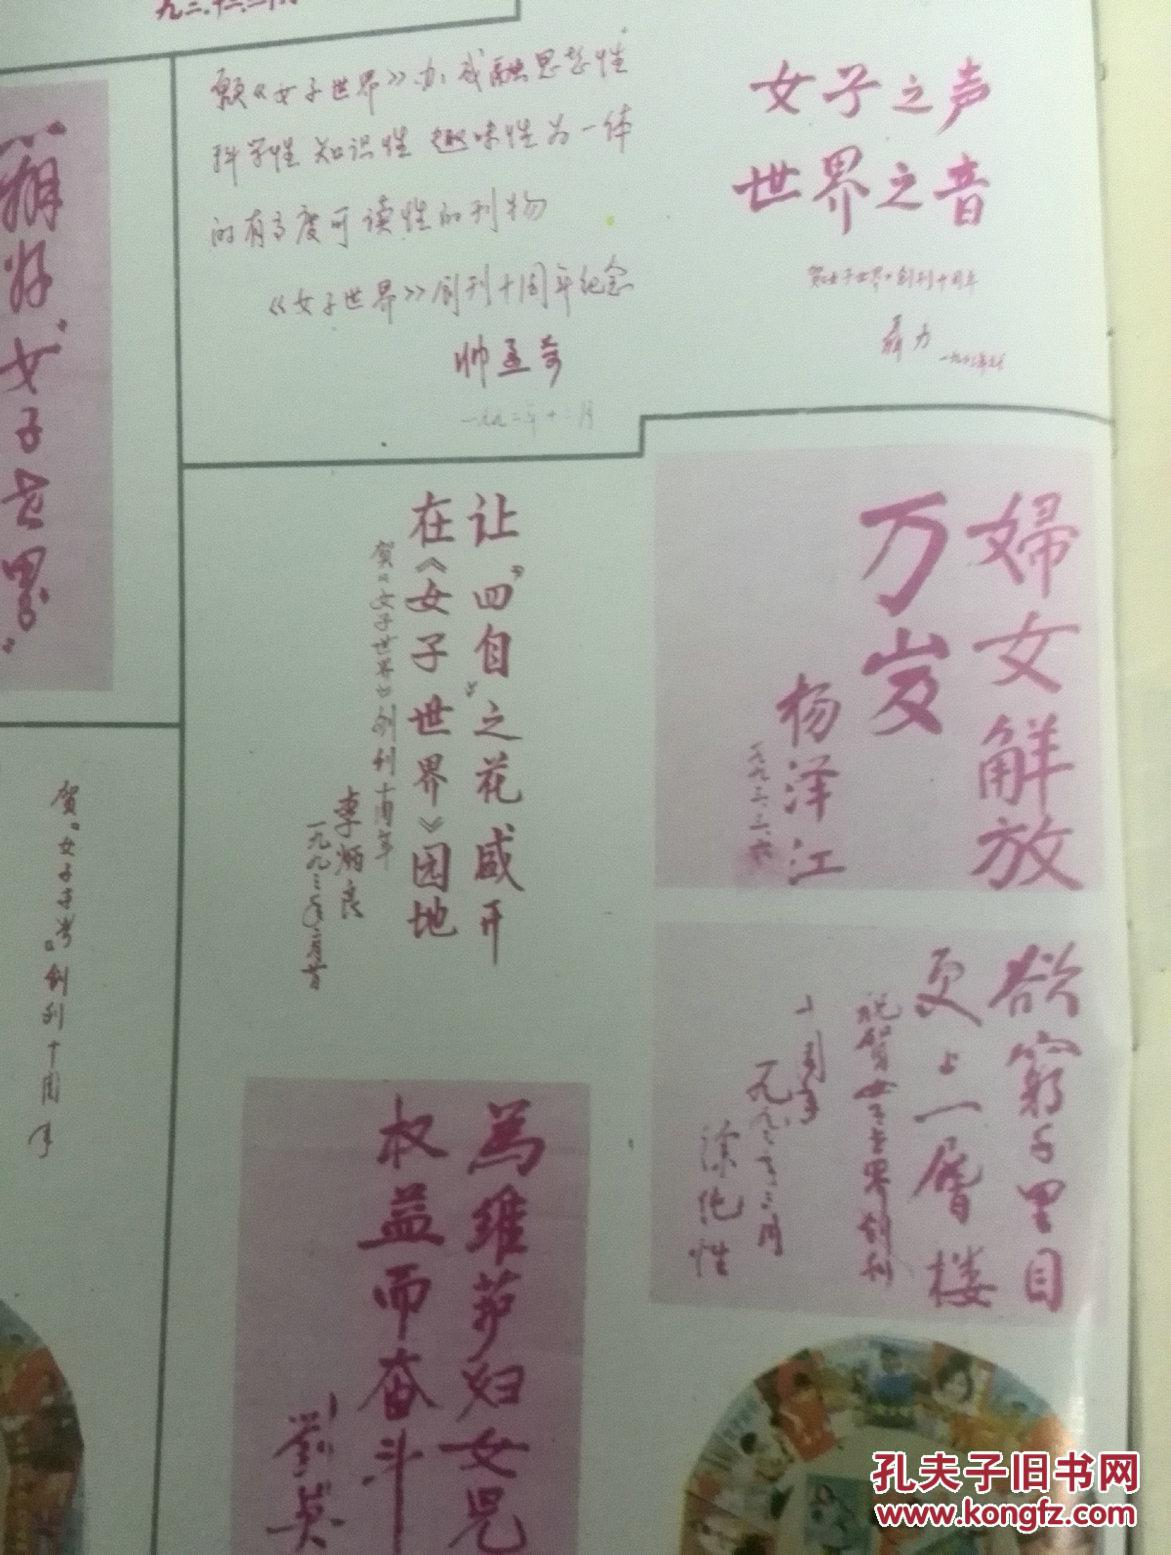 愿《女子世界》办成融思想性
科学性 知识性 趣味性为一体
的有高度可读性的刊物
《女子世界》创刊十周年纪念
帅孟奇
一九九二年十二月
女子之声
世界之音
贺《女子世界》创刊十周年
聂力
女子世界
让“四自”之花盛开
在《女子世界》园地
贺《女子世界》创刊十周年
李炳良
妇女解放
万岁
杨泽江
一九九三.三.六
欲穷千里目
更上一层楼
祝贺女子世界创刊
十周年
一九九三年三月
徐纯性
贺“女子世界”创刊十周年
为维护妇女儿
权益而奋斗
刘英
孔夫子旧书网
www.kongfz.com